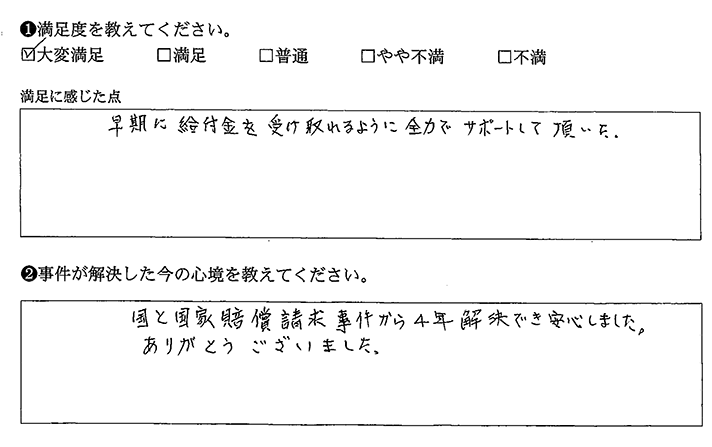 ❶満足度を教えてください。
☑大変満足 □満足 □普通 □やや不満 □不満
満足に感じた点
早期に給付金を受け取れるように全力でサポートして頂いた。
❷事件が解決した今の心境を教えてください。
国と国家賠償請求事件から4年解決でき安心しました。
ありがとうございました。